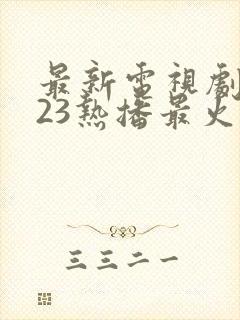 最新電視劇
23熱播最火
三三二一